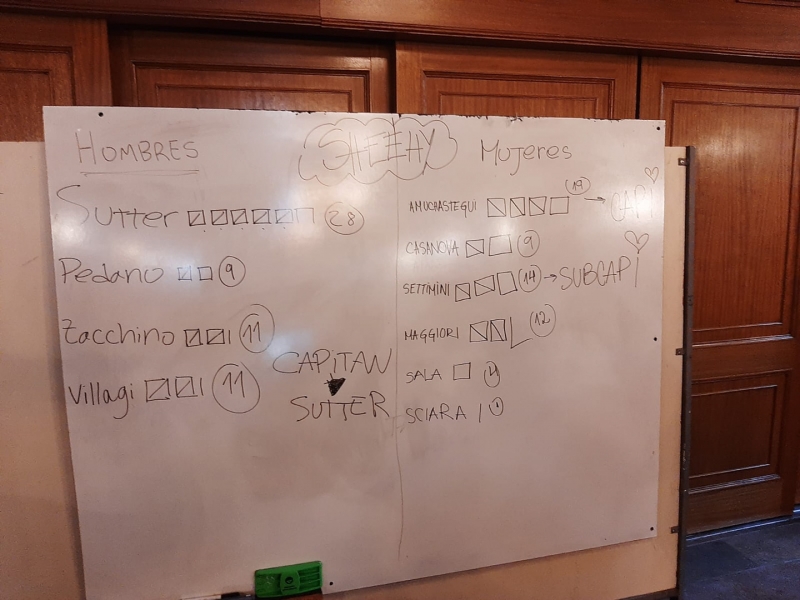 SHEEHY
HOMBRES
Sutter 28
Pedano 9
Zacchino 11
Villagi 11
CAPITAN
SUTTER
Mujeres
AMUCHASTEGUI 19 → CAPI
CASANOVA 9
SETTIMINI 14 → SUBCAPI
MAGGIORI 12
SALA 4
SCIARA 1